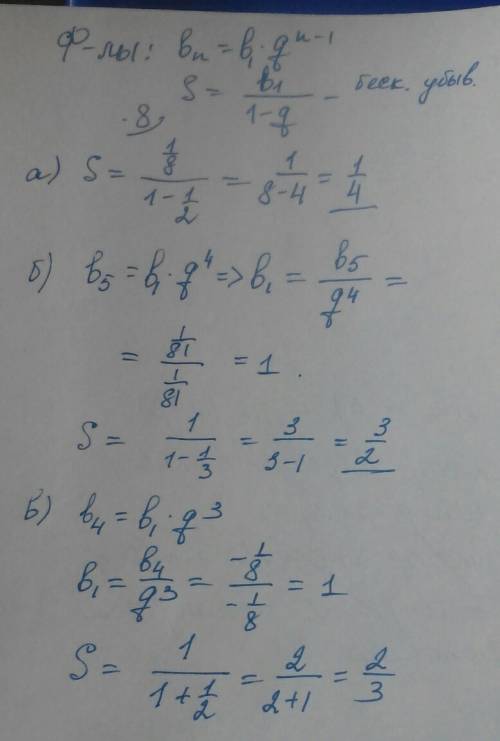 Ф-лы: bₙ = b₁ · qⁿ⁻¹
S = b₁/(1-q) – беск. убыв.
·8
а) S = (1/8)/(1-1/2) = 1/(8-4) = 1/4
б) b₅ = b₁ · q⁴ => b₁ = b₅/q⁴ =
= (1/81)/(1/81) = 1.
S = 1/(1-1/3) = 3/(3-1) = 3/2
в) b₄ = b₁ · q³
b₁ = b₄/q³ = (-1/8)/(-1/8) = 1
S = 1/(1+1/2) = 2/(2+1) = 2/3